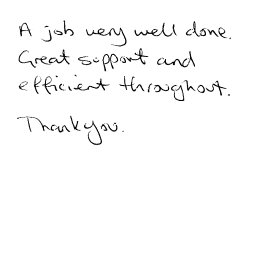 A job very well done.
Great support and
efficient throughout.
Thankyou.